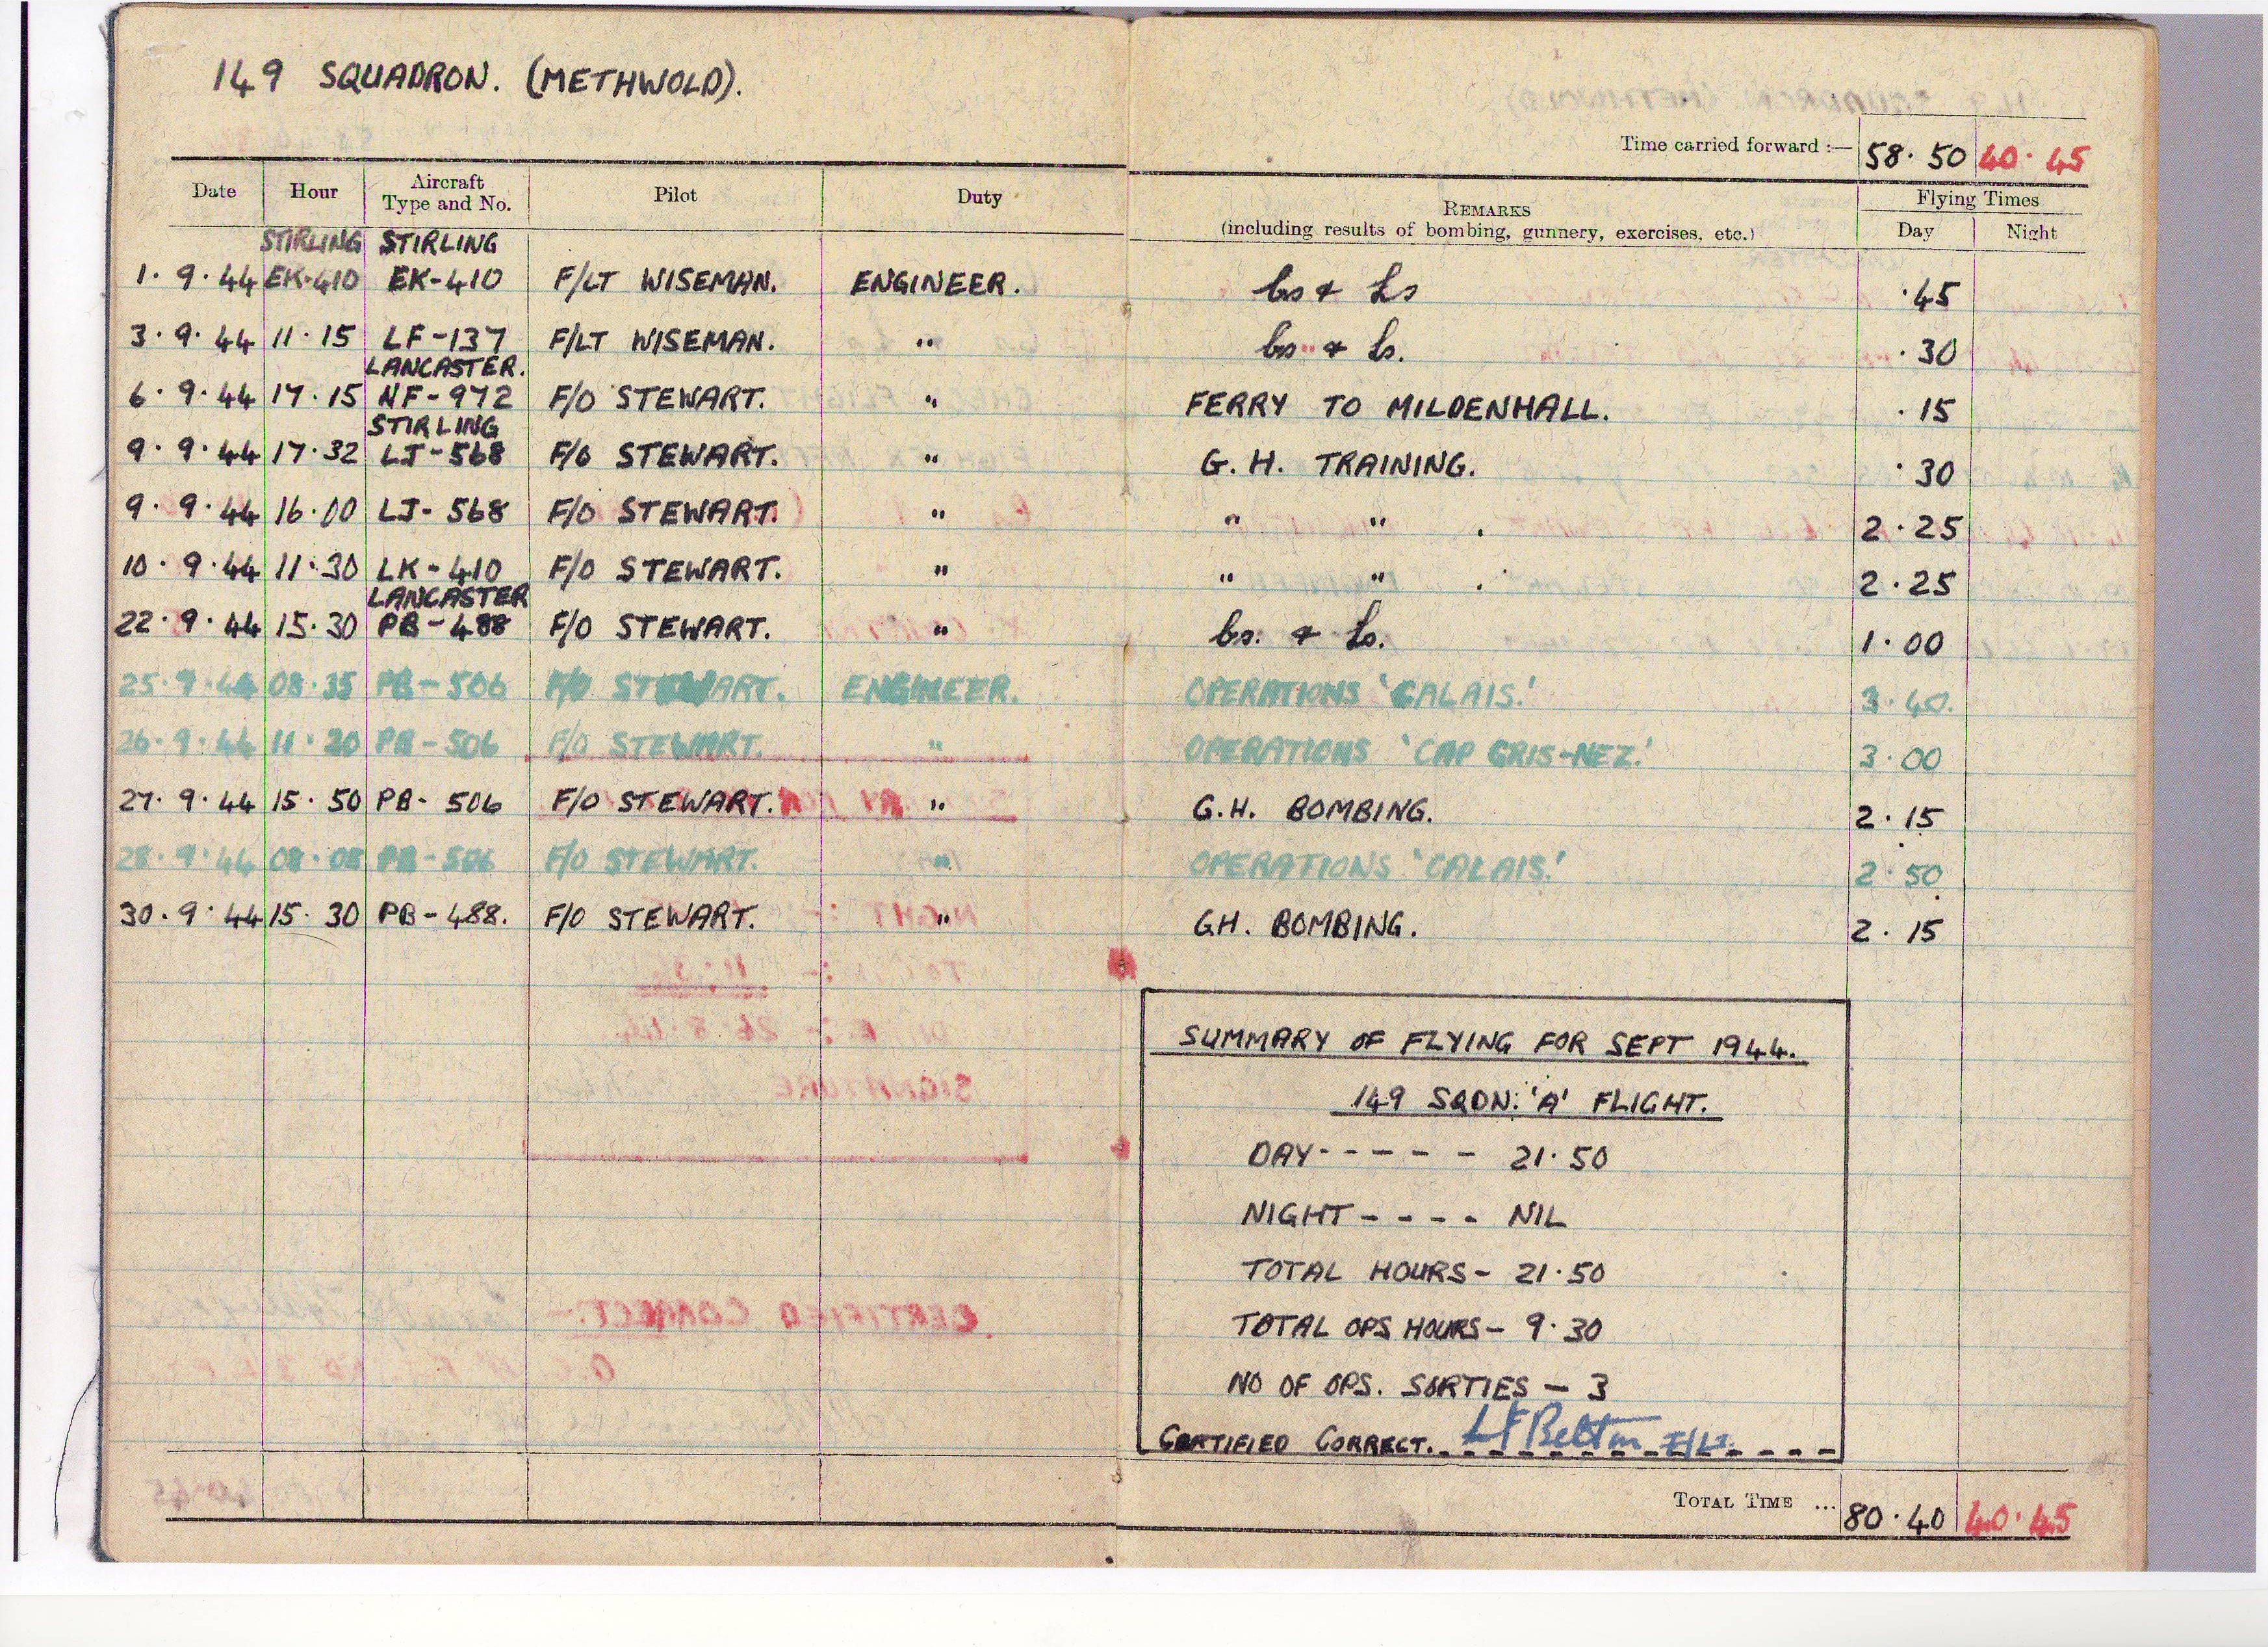 149 SQUADRON. (METHWOLD).
Time carried forward :— 58·50 40·45
Date Hour Aircraft Type and No. Pilot Duty REMARKS (including results of bombing, gunnery, exercises, etc.) Flying Times Day Night
STIRLING STIRLING
1·9·44 EK-410 EK-410 F/LT WISEMAN. ENGINEER. Cs & Ls ·45
3·9·44 11·15 LF-137 F/LT WISEMAN. " Cs & Ls. ·30
LANCASTER.
6·9·44 17·15 NF-972 F/O STEWART. " FERRY TO MILDENHALL. ·15
STIRLING
9·9·44 17·32 LJ-568 F/O STEWART. " G.H. TRAINING. ·30
9·9·44 16·00 LJ-568 F/O STEWART. " " " . 2·25
10·9·44 11·30 LK-410 F/O STEWART. " " " . 2·25
LANCASTER
22·9·44 15·30 PB-488 F/O STEWART. " Cs. & Ls. 1·00
25·9·44 08·35 PB-506 F/O STEWART. ENGINEER. OPERATIONS 'CALAIS.' 3·40.
26·9·44 11·20 PB-506 F/O STEWART. " OPERATIONS 'CAP GRIS-NEZ.' 3·00
27·9·44 15·50 PB-506 F/O STEWART. " G.H. BOMBING. 2·15
28·9·44 08·08 PB-506 F/O STEWART. " OPERATIONS 'CALAIS.' 2·50
30·9·44 15·30 PB-488. F/O STEWART. " G.H. BOMBING. 2·15
SUMMARY OF FLYING FOR SEPT 1944.
149 SQDN. 'A' FLIGHT.
DAY- - - - - 21·50
NIGHT- - - - NIL
TOTAL HOURS- 21·50
TOTAL OPS HOURS- 9·30
NO OF OPS. SORTIES - 3
CERTIFIED CORRECT. Belton F/Lt.
TOTAL TIME ... 80·40 40·45